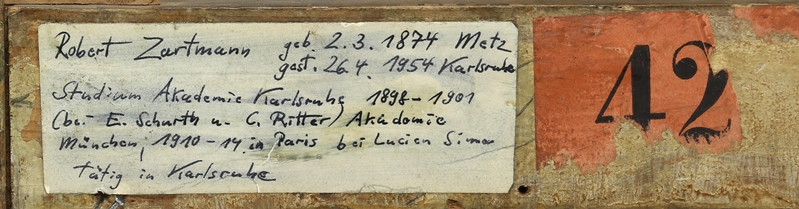 Robert Zartmann geb. 2.3. 1874 Metz
gest. 26.4. 1954 Karlsruhe
Studium Akademie Karlsruhe 1898-1901
(bei E. Schurth u. C. Ritter) Akademie
München, 1910-14 in Paris bei Lucien Simon
tätig in Karlsruhe
42